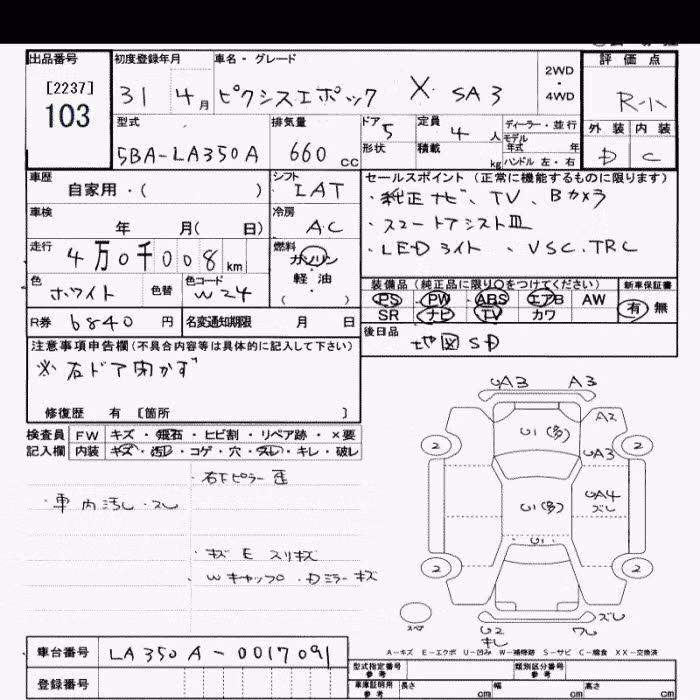 出品番号 初度登録年月 車名・グレード 2WD・4WD 評価点
[2237]
103
31 4月 ピクシスエポック X SA3 R-小
型式 排気量 ドア 5 定員 4人 ディーラー・並行 外装 内装
モデル年式 年
5BA-LA350A 660cc 形状 積載 kg ハンドル 左・右 D C
車歴 シフト セールスポイント (正常に機能するものに限ります)
自家用・( ) IAT ・純正ナビ、TV、Bカメラ
車検 冷房 ・スマートアシストIII
年 月( 日) AC ・LEDライト、VSC.TRC
走行 燃料
4万0千008km ガソリン
軽油
( )
装備品 (純正品に限り○をつけてください) 新車保証書
色 色替 色コード PS PW ABS エアB AW 有 無
ホワイト W24 SR ナビ TV カワ
R券 6840円 名変通知期限 月 日 後日品
地図 SD
注意事項申告欄 (不具合内容等は具体的に記入して下さい)
※右ドア開かず
修復歴 有 [箇所 ]
検査員 FW キズ・飛石・ヒビ割・リペア跡・×要
記入欄 内装 キズ・汚レ・コゲ・穴・スレ・キレ・破レ
右下ピラー歪
・車内汚レ・スレ
・キズ E スリキズ
・Wキャップ・Dミラーキズ
UA3 A3
U1(多) A2
2 2
UA3
UA4
ズレ
U1(多)
・U1
2 2
スペア
U2 ズレ
A-キズ E-エクボ U-凹み W-補修跡 S-サビ C-腐食 XX-交換済
車台番号 LA350A-0017091
登録番号
型式指定番号 参考 類別区分番号 参考
車庫証明用 参考 長さ cm 幅 cm 高さ cm